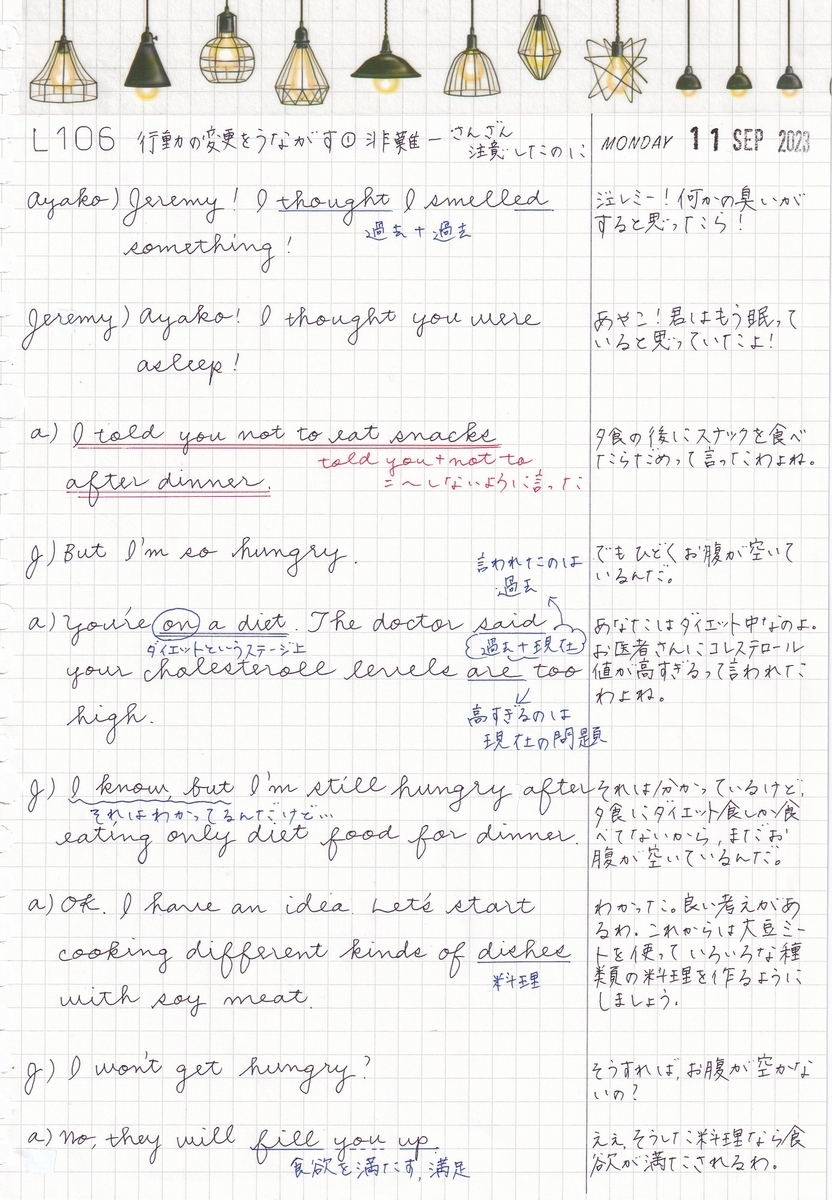 L106 行動の変更をうながす① 非難－さんざん
注意したのに
MONDAY 11 SEP 2023
Ayako) Jeremy! I thought I smelled
過去+過去
something!
ジェレミー!何かの臭いが
すると思ったら!
Jeremy) Ayako! I thought you were
asleep!
あやこ!君はもう眠って
いると思っていたよ!
a) I told you not to eat snacks
told you+not to
after dinner.
=～しないように言った
夕食の後にスナックを食べ
たらだめって言ったわよね。
J) But I'm so hungry.
でもひどくお腹が空いて
いるんだ。
言われたのは
過去
a) You're on a diet. The doctor said
ダイエットというステージ上
過去+現在
your cholesteroll levels are too
high.
高すぎるのは
現在の問題
あなたはダイエット中なのよ。
お医者さんにコレステロール
値が高すぎるって言われた
わよね。
J) I know, but I'm still hungry after
それはわかってるんだけど…
eating only diet food for dinner.
それは分かっているけど、
夕食にダイエット食しか食
べてないから、まだお
腹が空いているんだ。
a) OK. I have an idea. Let's start
cooking different kinds of dishes
料理
with soy meat.
わかった。良い考えがあ
るわ。これからは大豆ミー
トを使っていろいろな種
類の料理を作るように
しましょう。
J) I won't get hungry?
そうすれば、お腹が空かな
いの?
a) No, they will fill you up.
食欲を満たす,満足
ええ、そうした料理なら食
欲が満たされるわ。